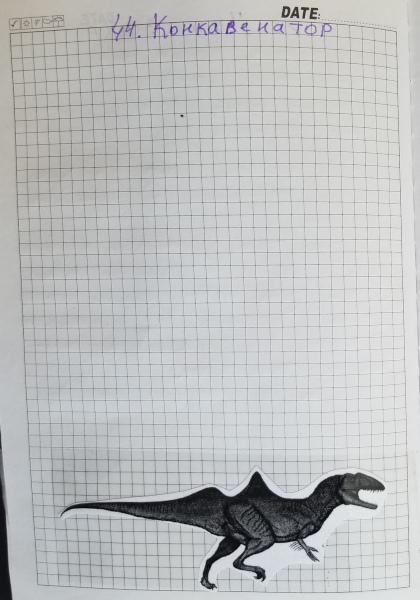 DATE:
44. Конкавенатор